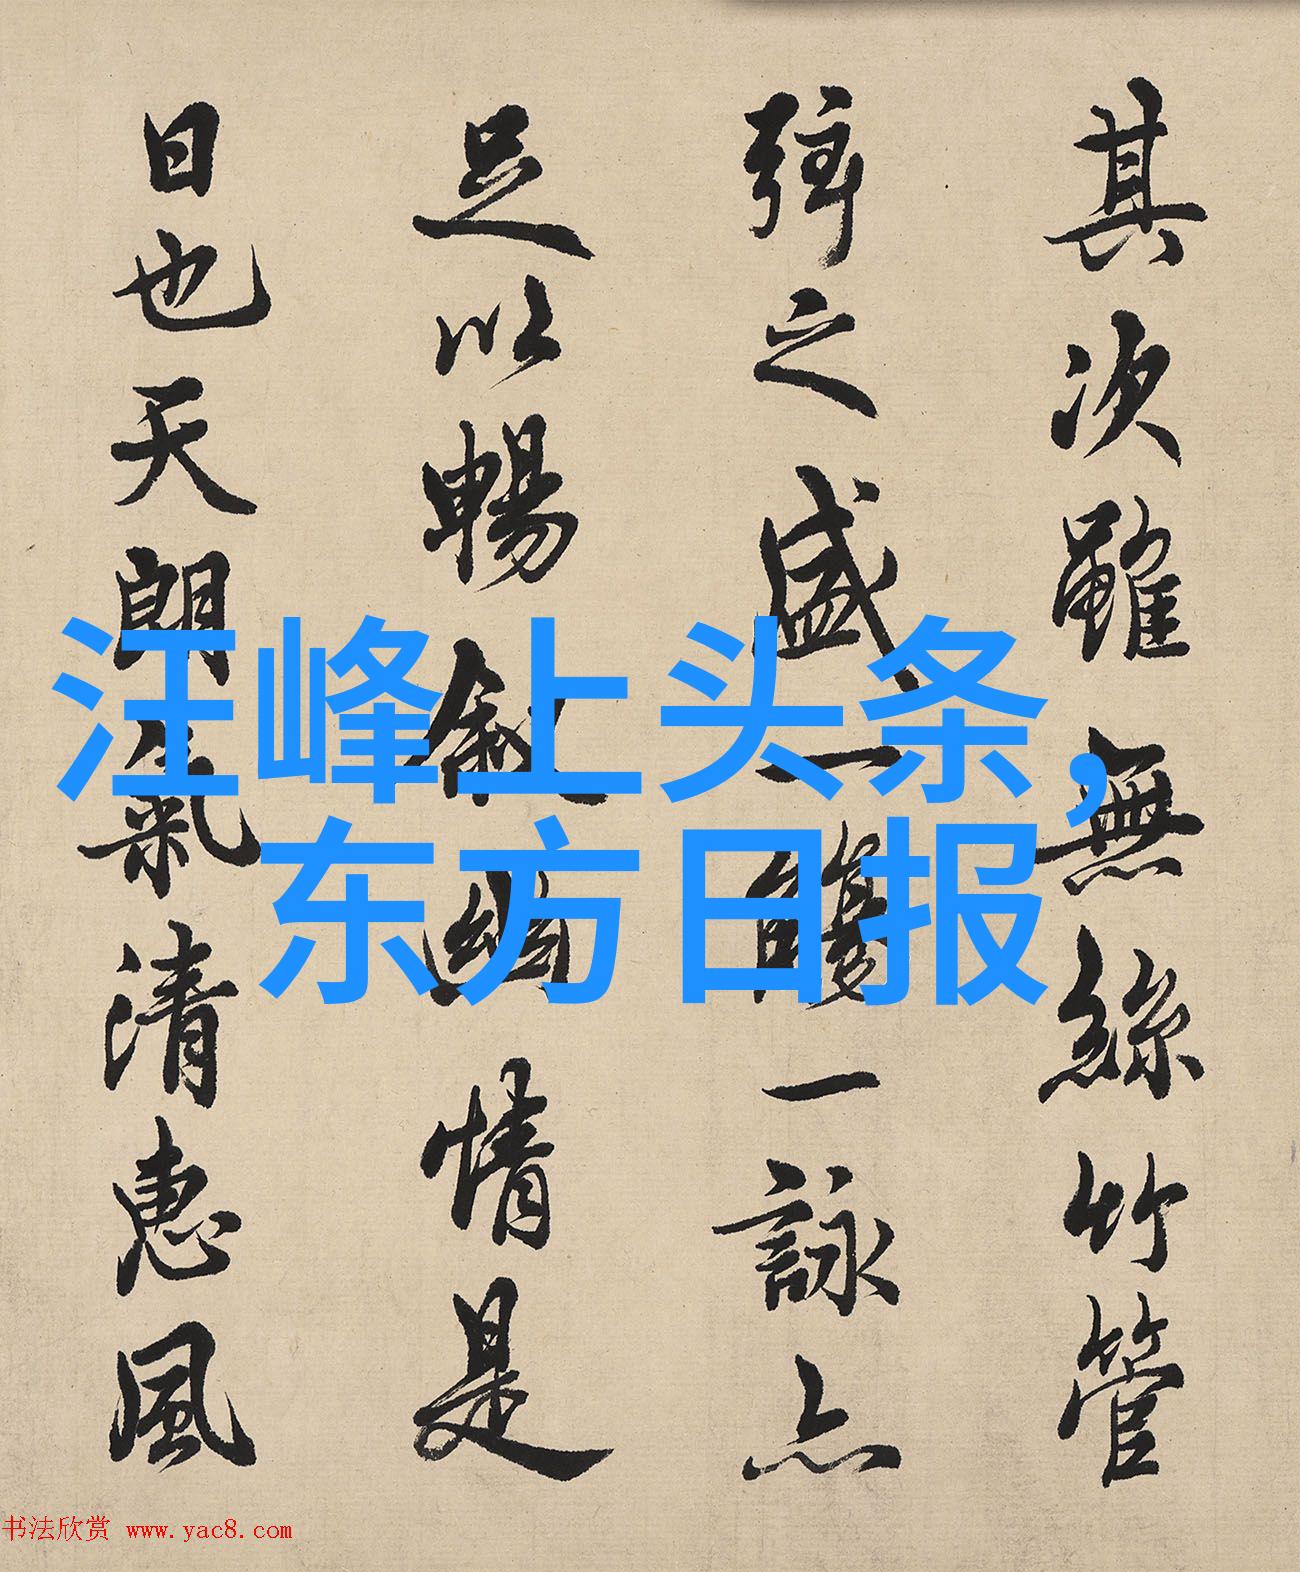 其次雖無絲竹管
弦之盛一觴一詠亦
足以暢敘幽情是
日也天朗氣清惠風
汪峰上头条，
东方日报
书法欣赏 www.yac8.com